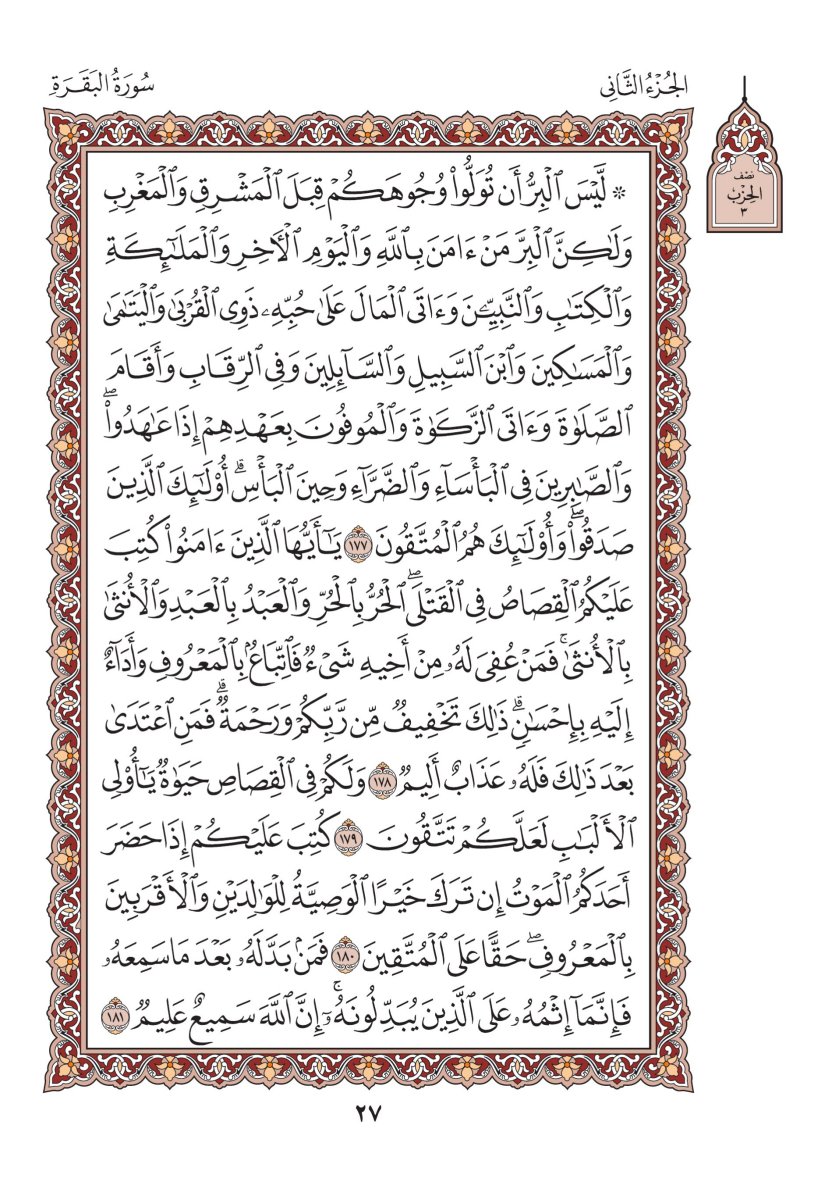 الجُزْءُ الثَّانِي
سُورَةُ البَقَرَةِ
نصف
الحزب
٣
۞ لَّيۡسَ ٱلۡبِرَّ أَن تُوَلُّواْ وُجُوهَكُمۡ قِبَلَ ٱلۡمَشۡرِقِ وَٱلۡمَغۡرِبِ
وَلَٰكِنَّ ٱلۡبِرَّ مَنۡ ءَامَنَ بِٱللَّهِ وَٱلۡيَوۡمِ ٱلۡأٓخِرِ وَٱلۡمَلَٰٓئِكَةِ
وَٱلۡكِتَٰبِ وَٱلنَّبِيِّـۧنَ وَءَاتَى ٱلۡمَالَ عَلَىٰ حُبِّهِۦ ذَوِي ٱلۡقُرۡبَىٰ وَٱلۡيَتَٰمَىٰ
وَٱلۡمَسَٰكِينَ وَٱبۡنَ ٱلسَّبِيلِ وَٱلسَّآئِلِينَ وَفِي ٱلرِّقَابِ وَأَقَامَ
ٱلصَّلَوٰةَ وَءَاتَى ٱلزَّكَوٰةَ وَٱلۡمُوفُونَ بِعَهۡدِهِمۡ إِذَا عَٰهَدُواْۖ
وَٱلصَّٰبِرِينَ فِي ٱلۡبَأۡسَآءِ وَٱلضَّرَّآءِ وَحِينَ ٱلۡبَأۡسِۗ أُوْلَٰٓئِكَ ٱلَّذِينَ
صَدَقُواْۖ وَأُوْلَٰٓئِكَ هُمُ ٱلۡمُتَّقُونَ ١٧٧ يَٰٓأَيُّهَا ٱلَّذِينَ ءَامَنُواْ كُتِبَ
عَلَيۡكُمُ ٱلۡقِصَاصُ فِي ٱلۡقَتۡلَىۖ ٱلۡحُرُّ بِٱلۡحُرِّ وَٱلۡعَبۡدُ بِٱلۡعَبۡدِ وَٱلۡأُنثَىٰ
بِٱلۡأُنثَىٰۚ فَمَنۡ عُفِيَ لَهُۥ مِنۡ أَخِيهِ شَيۡءٞ فَٱتِّبَاعُۢ بِٱلۡمَعۡرُوفِ وَأَدَآءٌ
إِلَيۡهِ بِإِحۡسَٰنٖۗ ذَٰلِكَ تَخۡفِيفٞ مِّن رَّبِّكُمۡ وَرَحۡمَةٞۗ فَمَنِ ٱعۡتَدَىٰ
بَعۡدَ ذَٰلِكَ فَلَهُۥ عَذَابٌ أَلِيمٞ ١٧٨ وَلَكُمۡ فِي ٱلۡقِصَاصِ حَيَوٰةٞ يَٰٓأُوْلِي
ٱلۡأَلۡبَٰبِ لَعَلَّكُمۡ تَتَّقُونَ ١٧٩ كُتِبَ عَلَيۡكُمۡ إِذَا حَضَرَ
أَحَدَكُمُ ٱلۡمَوۡتُ إِن تَرَكَ خَيۡرًا ٱلۡوَصِيَّةُ لِلۡوَٰلِدَيۡنِ وَٱلۡأَقۡرَبِينَ
بِٱلۡمَعۡرُوفِۖ حَقًّا عَلَى ٱلۡمُتَّقِينَ ١٨٠ فَمَنۢ بَدَّلَهُۥ بَعۡدَ مَا سَمِعَهُۥ
فَإِنَّمَآ إِثۡمُهُۥ عَلَى ٱلَّذِينَ يُبَدِّلُونَهُۥٓۚ إِنَّ ٱللَّهَ سَمِيعٌ عَلِيمٞ ١٨١
٢٧